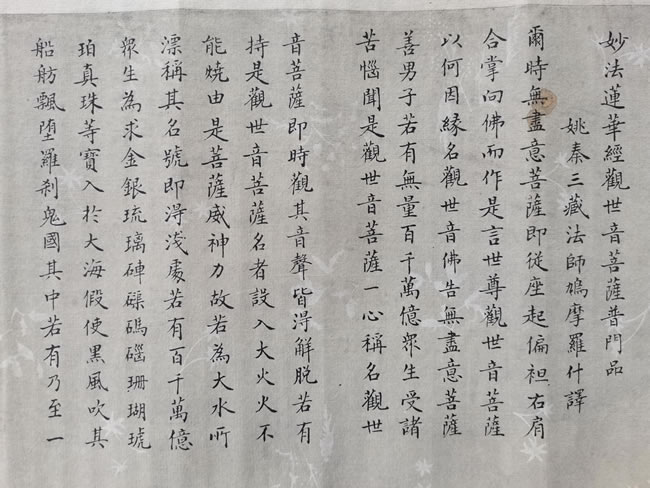 妙法蓮華經觀世音菩薩普門品
姚秦三藏法師鳩摩羅什譯
爾時無盡意菩薩即從座起偏袒右肩
合掌向佛而作是言世尊觀世音菩薩
以何因緣名觀世音佛告無盡意菩薩
善男子若有無量百千萬億眾生受諸
苦惱聞是觀世音菩薩一心稱名觀世
音菩薩即時觀其音聲皆得解脫若有
持是觀世音菩薩名者設入大火火不
能燒由是菩薩威神力故若為大水所
漂稱其名號即得淺處若有百千萬億
眾生為求金銀琉璃硨磲碼碯珊瑚琥
珀真珠等寶入於大海假使黑風吹其
船舫飄墮羅剎鬼國其中若有乃至一